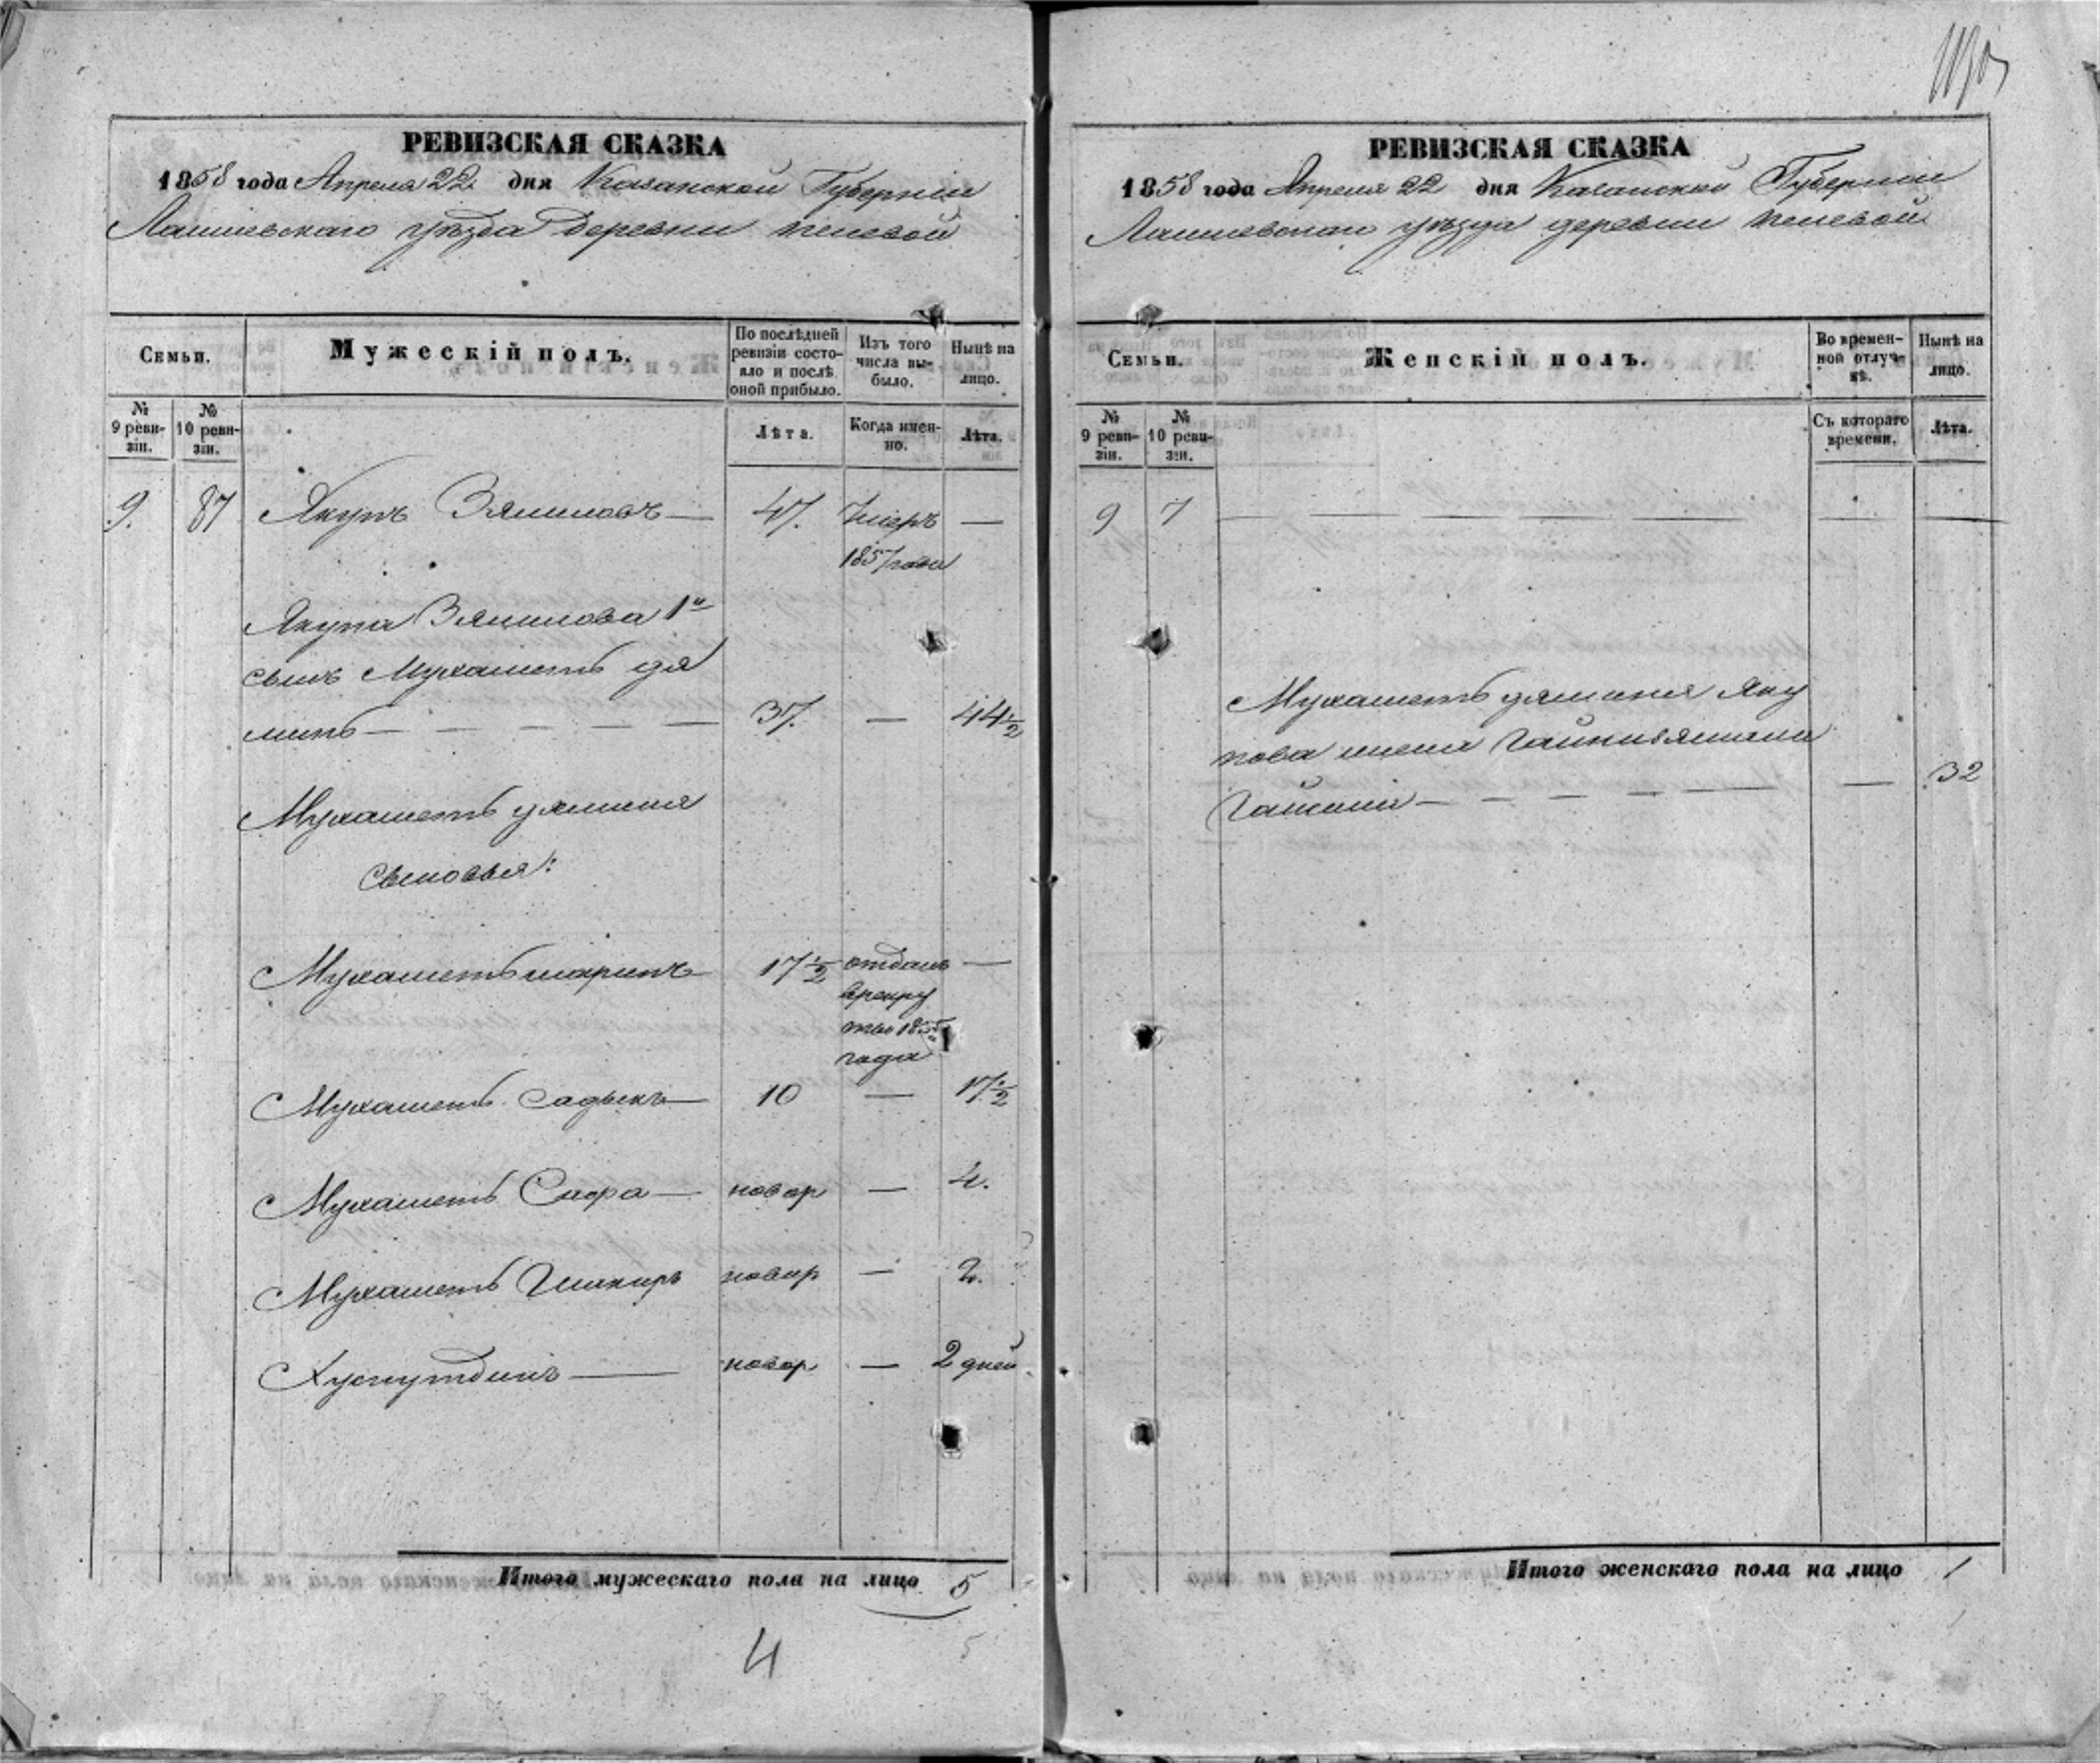 РЕВИЗСКАЯ СКАЗКА
1858 года Апреля 22 дня Казанской Губернии
Лаишевскаго уезда Деревни
Семьи.
Мужескій полъ.
По послѣдней ревизіи состояло и послѣ оной прибыло.
Изъ того числа выбыло.
Нынѣ на лицо.
№ 9 ревизіи.
№ 10 ревизіи.
Лѣта.
Когда именно.
Лѣта.
9. 87 Якупъ 47. Умеръ —
1857 года
Якупа 1й
сынъ Мухаметь дя
минъ — — — — 37. — 44½
Мухаметь
сыновья:
Мухаметьшарипъ 17½ отданъ —
врекру
ты 1855
года
Мухаметь Садыкъ — 10 — 17½
Мухаметь Сафа — новор — 4.
Мухаметь Шакиръ новор — 2.
Хуснутдинъ — новор — 2 дней
Итого мужескаго пола на лицо 5
4
5
РЕВИЗСКАЯ СКАЗКА
1858 года Апреля 22 дня Казанской Губернии
Лаишевскаго уезда деревни
Семьи.
Женскій полъ.
Во временной отлучкѣ.
Нынѣ на лицо.
№ 9 ревизіи.
№ 10 ревизіи.
Съ котораго времени.
Лѣта.
9 7 — — —
Мухаметь Яку
пова жена
— — — — — — 32
Итого женскаго пола на лицо 1